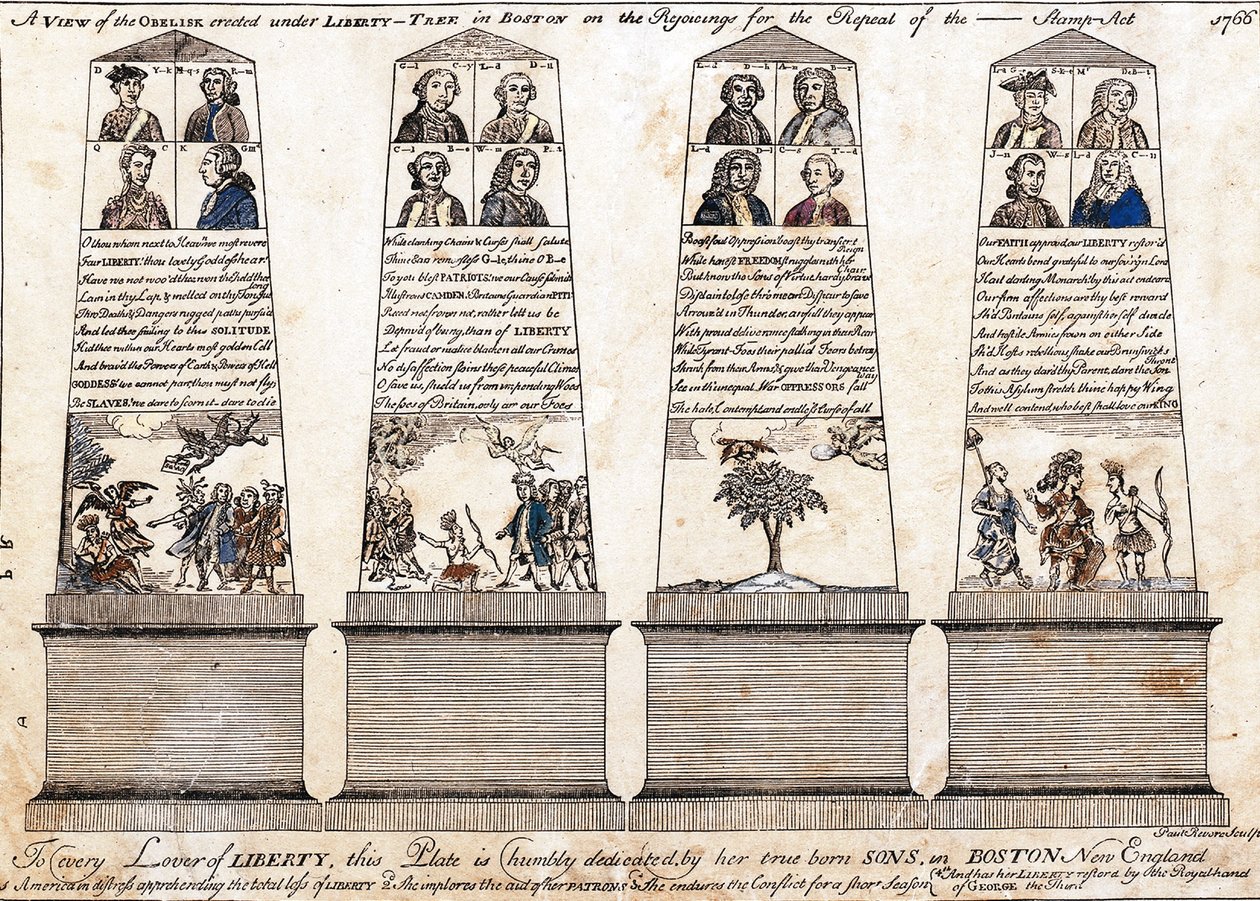 A VIEW of the OBELISK erected under LIBERTY-TREE in BOSTON on the Rejoicings for the Repeal of the —— Stamp-Act 1766
D Y-k M-q-s R-m
Q C K G
O thou whom next to Heav'n we most revere
Fair LIBERTY! thou lovely Goddess hear!
Have we not woo'd thee, won thee, held thee long
Lain in thy Lap & melted on thy Tongue
Thro Deaths & Dangers rugged paths pursu'd
And led thee smiling to this SOLITUDE
Hid thee within our Hearts most golden Cell
And brav'd the Powers of Earth & Powers of Hell
GODDESS! we cannot part, thou must not fly;
Be SLAVES! we dare to scorn it—dare to die
G-l C-y L-d D-
C-l B-e W-m P-t
While clanking Chains & Curses shall salute
Thine Ears remorsless G-le, thine O B-e
To you blest PATRIOTS! we our Cause submit
Illustrious CAMDEN, Britains Guardian, PITT!
Recede not, frown not, rather let us be
Depriv'd of being, than of LIBERTY
Let fraud or malice blacken all our Crimes
No disaffection stains these peaceful Climes
O save us, shield us from impending Woes
The foes of Britain, only are our Foes
L-d D-h A-n B-r
L-d D- C-s T-d
Boast foul Oppression! boast thy transient Reign
While honest FREEDOM struggles with her Chain
But know the Sons of Virtue, hardy, brave
Disdain to lose thro mean Dispair to save
Arrouz'd in Thunder, awfull they appear
With proud deliverance stalking in their Rear
While Tyrant-Foes their pallid Fears betray
Shrink from their Arms & give their Vengeance way
See in th' unequal War OPPRESSORS fall
The hate, Contempt, and endless Curse of all
L-d G- S-k-e Mr DeB-t
J-n W-s L-d C-
Our FAITH approv'd, our LIBERTY restor'd
Our Hearts bend grateful to our sov'r'gn Lord
Hail darling Monarch! by this act endear'd
Our firm affections are thy best reward
Sh'd Britains self, against her self divide
And hostile Armies frown on either Side
Sh'd Hosts rebellious shake our Brunswick's Throne
And as they dar'd thy Parent, dare the Son
To this Asylum stretch thine happy Wing
And we'll contend, who best shall love our KING
Paul Revere Sculp
To every Lover of LIBERTY, this Plate is humbly dedicated, by her true born SONS, in BOSTON New England
America in distress apprehending the total loss of LIBERTY 2d She implores the aid of her PATRONS 3d She endures the Conflict for a short Season 4th And has her LIBERTY restord by the Royal hand of GEORGE the Third